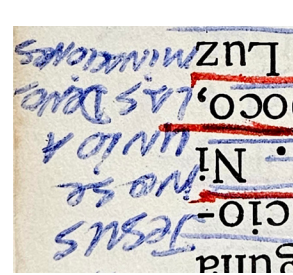 cio-
. Ni
oco,
Luz
JESUS
NO SE
UNIO A
LAS DENO,
MINACIONES